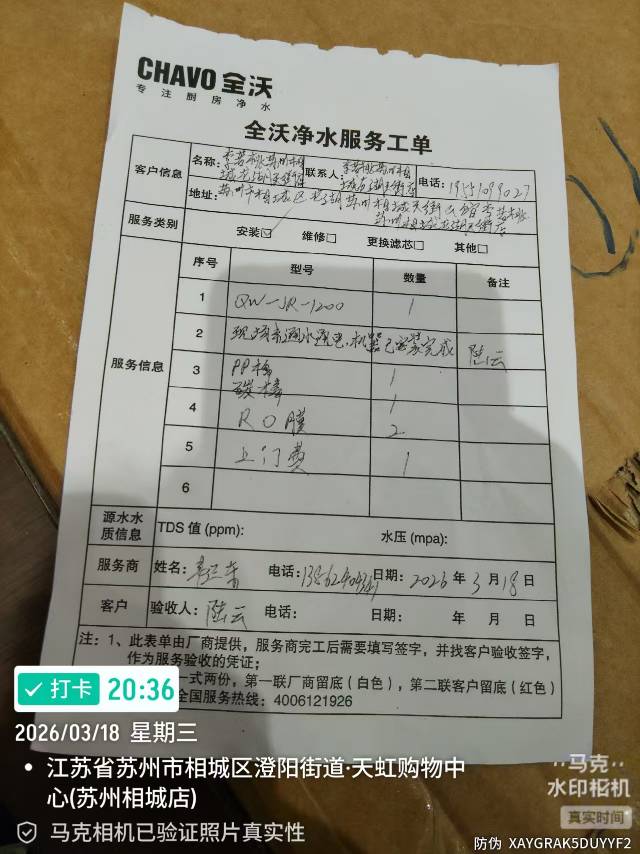 CHAVO 全沃
专注厨房净水
全沃净水服务工单
客户信息 名称: 联系人: 电话:
地址: 苏州市相城区
服务类别 安装☑ 维修□ 更换滤芯□ 其他□
服务信息
序号 型号 数量 备注
1 QW-JR-1200 1
2 现场未通水通电,机器已安装完成 陆云
3 PP棉 1
碳棒 1
4 RO膜 2
5 上门费 1
6
源水水质信息 TDS 值 (ppm): 水压 (mpa):
服务商 姓名: 电话: 日期: 2026 年 3 月 18 日
客户 验收人: 陆云 电话: 日期: 年 月 日
注: 1、此表单由厂商提供,服务商完工后需要填写签字,并找客户验收签字,
作为服务验收的凭证;
一式两份,第一联厂商留底(白色),第二联客户留底(红色)
全国服务热线: 4006121926
打卡 20:36
2026/03/18 星期三
江苏省苏州市相城区澄阳街道·天虹购物中
心(苏州相城店)
马克相机已验证照片真实性
马克
水印相机
真实时间
防伪 XAYGRAK5DUYYF2